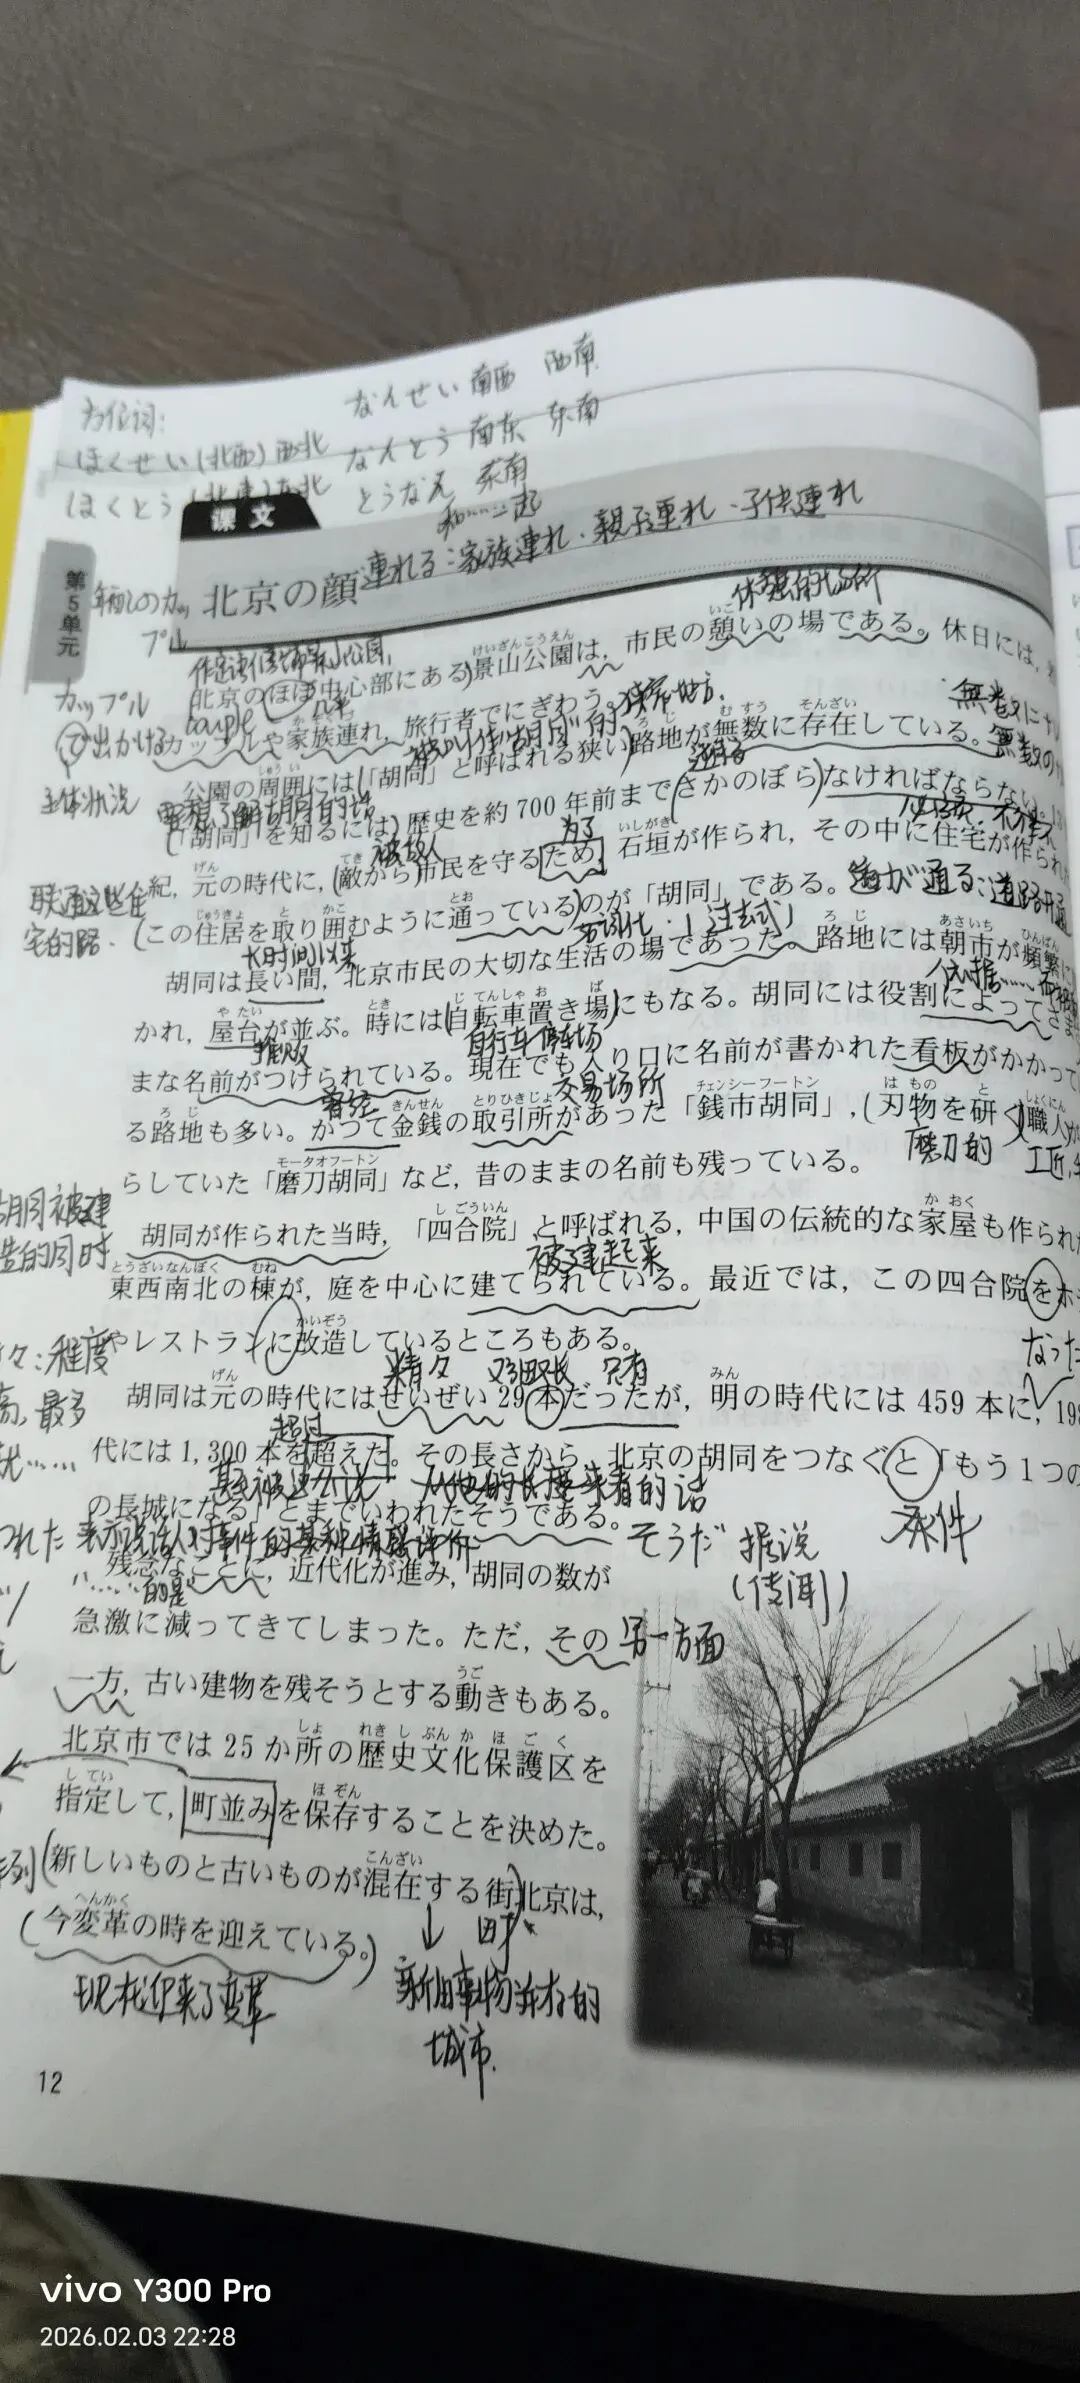 方位词:
なんせい 南西 西南
ほくせい(北西) 西北 なんとう 南东 东南
ほくとう
とうなん 东南
课文
和……一起
連れる:家族連れ・親子連れ・子供連れ
第5单元
北京の顔
カップル
couple
出かける
主体状况
休憩的场所
北京のほぼ中心部にある景山公園は,市民の憩いの場である。休日には,
カップルや家族連れ,旅行者でにぎわう。
公園の周囲には「胡同」と呼ばれる狭い路地が無数に存在している。
「胡同」を知るには,歴史を約700年前までさかのぼらなければならない。
紀,元の時代に,敵から市民を守るため,石垣が作られ,その中に住宅が作られ
この住居を取り囲むように通っているのが「胡同」である。
胡同は長い間,北京市民の大切な生活の場であった。路地には朝市が頻繁に
かれ,屋台が並ぶ。時には自転車置き場にもなる。胡同には役割によってさま
まな名前がつけられている。現在でも入り口に名前が書かれた看板がかかって
る路地も多い。かつて金銭の取引所があった「銭市胡同」,刃物を研ぐ職人が
らしていた「磨刀胡同」など,昔のままの名前も残っている。
胡同が作られた当時,「四合院」と呼ばれる,中国の伝統的な家屋も作られ
東西南北の棟が,庭を中心に建てられている。最近では,この四合院をホ
やレストランに改造しているところもある。
胡同は元の時代にはせいぜい29本だったが,明の時代には459本に,198
代には1,300本を超えた。その長さから,北京の胡同をつなぐと「もう1つの
の長城になる」とまでいわれたそうである。
残念なことに,近代化が進み,胡同の数が
急激に減ってきてしまった。ただ,その
一方,古い建物を残そうとする動きもある。
北京市では25か所の歴史文化保護区を
指定して,町並みを保存することを決めた。
新しいものと古いものが混在する街北京は,
今変革の時を迎えている。
为了
联通这些住
宅的路.
道が通る:道路开通
长时间以来
(过去式)
自行车停车场
交易场所
曾经
磨刀的
工匠
胡同被建
造的同时
被建起来
超过
只有
なった
条件
そうだ 据说
(传闻)
的是
另一方面
町
现在迎来了变革
新旧事物并存的
城市.
12
vivo Y300 Pro
2026.02.03 22:28